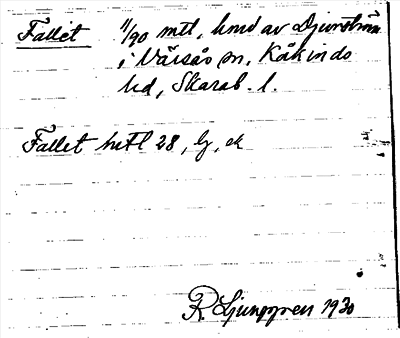 Fallet 1/90 mtl, hmd av Djurström
i Värsås sn, Kåkinds
hd, Skarab. l.
Fallet htl 28, lj, ek
R. Ljunggren 1930